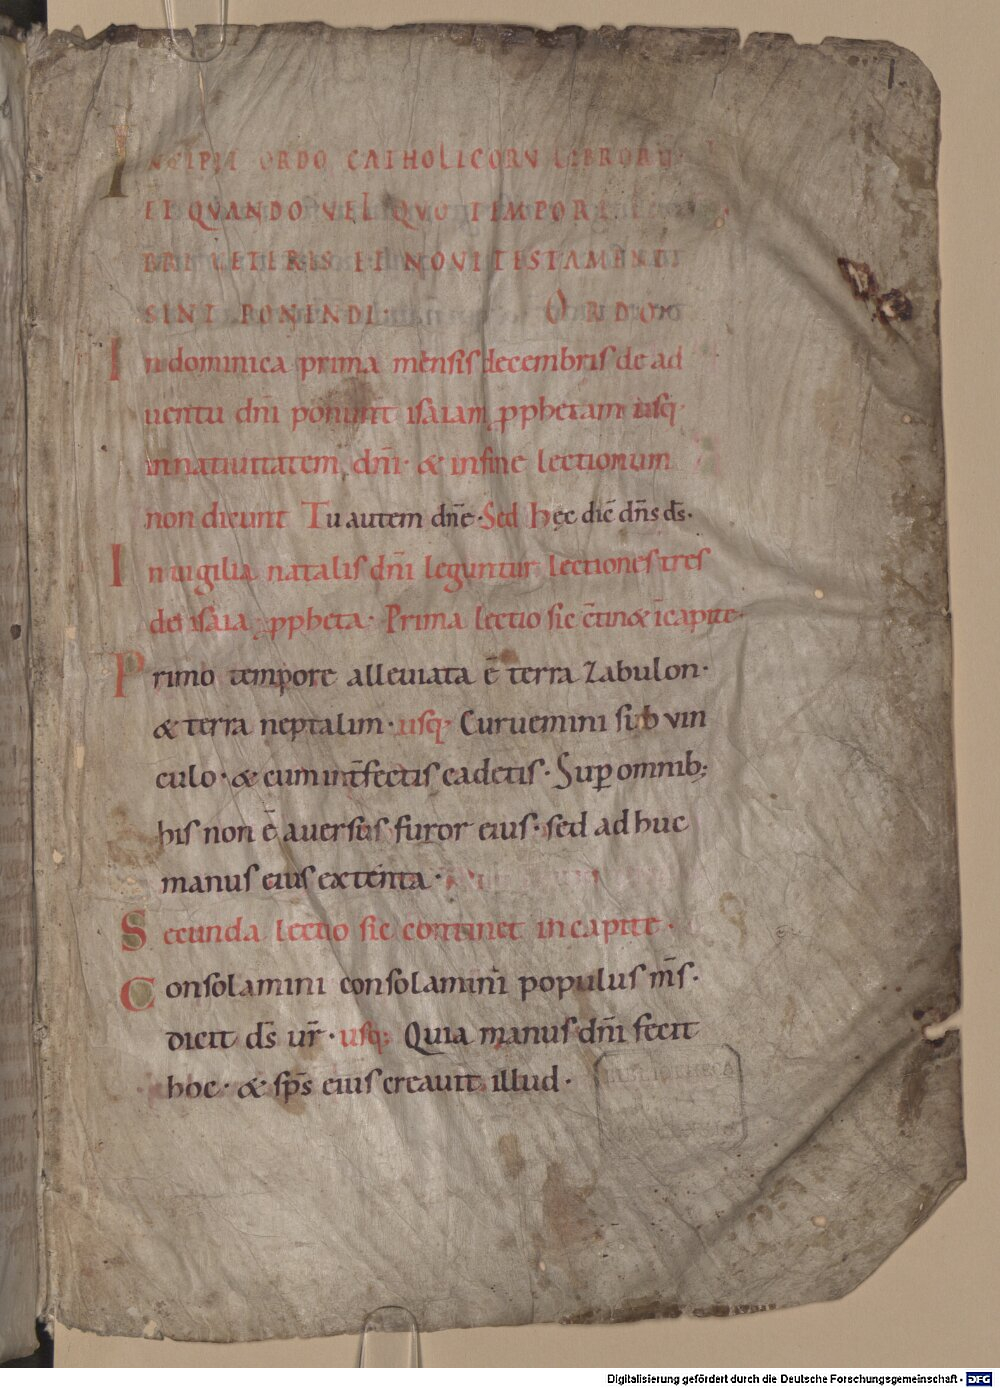 INCIPIT ORDO CATHOLICORŪ LIBRORŪ·
ET QVANDO VEL QVO TEMPORE
BRI VETERIS ET NOVI TESTAMENTI
SINT PONENDI· ORDO·
In dominica prima mensis decembris de ad
uentu dn̄i ponunt isaiam ꝓphetam usq·
in natiuitatem dn̄i· & in fine lectionum
non dicunt Tu autem dn̄e· Sed Hęc dic̄ dn̄s ds̄·
In uigilia natalis dn̄i leguntur lectiones tres
de isaia ꝓpheta· Prima lectio sic c̄tin& ī capite·
Primo tempore alleuiata ē terra Zabulon·
& terra neptalim· usq; Curuemini sub vin
culo· & cum int̄fectis cadetis· Suꝑ omnib;
his non ē auersus furor eius· sed adhuc
manus eius extenta·
Secunda lectio sic continet in capite·
Consolamini consolamini populus ms̄·
dicit ds̄ ur̄· usq; Quia manus dn̄i fecit
hoc· & sp̄s eius creauit illud·
BIBLIOTHECA
Digitalisierung gefördert durch die Deutsche Forschungsgemeinschaft - DFG